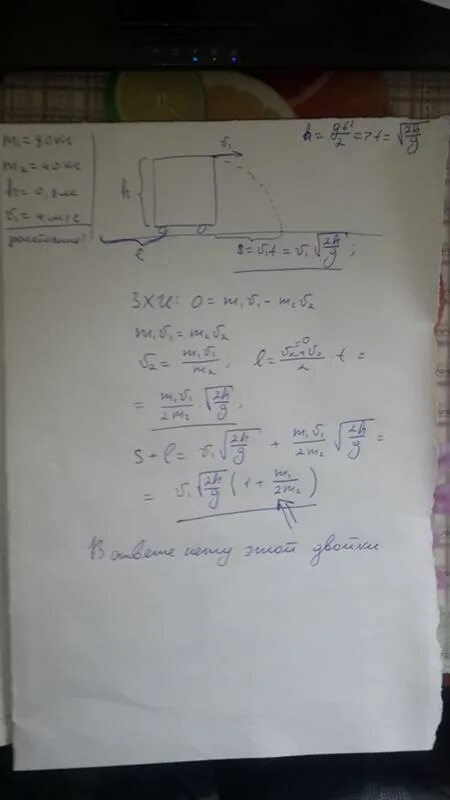 m₁=80кг
m₂=40кг
h=0,8м
v₁=4м/с
расстояние?
h = gt²/2 => t = √(2h/g)
v₁
h
l
S = v₁t = v₁ √(2h/g) ;
ЗХИ: 0 = m₁v₁ - m₂v₂
m₁v₁ = m₂v₂
v₂ = m₁v₁/m₂ ; l = (vₖ⁼⁰+v₂)/2 · t =
= m₁v₁/2m₂ · √(2h/g) ;
S + l = v₁ √(2h/g) + m₁v₁/2m₂ √(2h/g) =
= v₁ √(2h/g) (1 + m₁/2m₂)
В ответе нету этой двойки